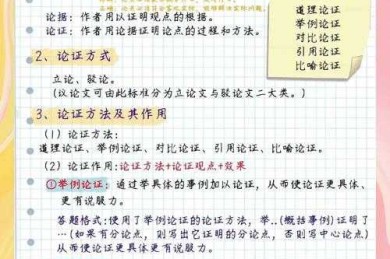 论据：作者用以证明观点的根据。
论证：作者用论据证明论点的过程和方法。
道理论证
举例论证
对比论证
引用论证
比喻论证
2、论证方式
立论、驳论。
（议论文可由此标准分为立论文与驳论文二大类。）
3、论证方法及其作用
（1）论证方法：
道理论证、举例论证、对比论证、引用论证、比喻论证。
（2）论证作用：论证方法+论证观点+效果
①举例论证：通过举具体的事例加以论证，从而使论证更具体、
更有说服力。
答题格式：使用了举例论证的论证方法，举..（概括事例）证明了
…（如果有分论点，则写出它证明的分论点，否则写中心论点）
从而使论证更具体更有说服力。